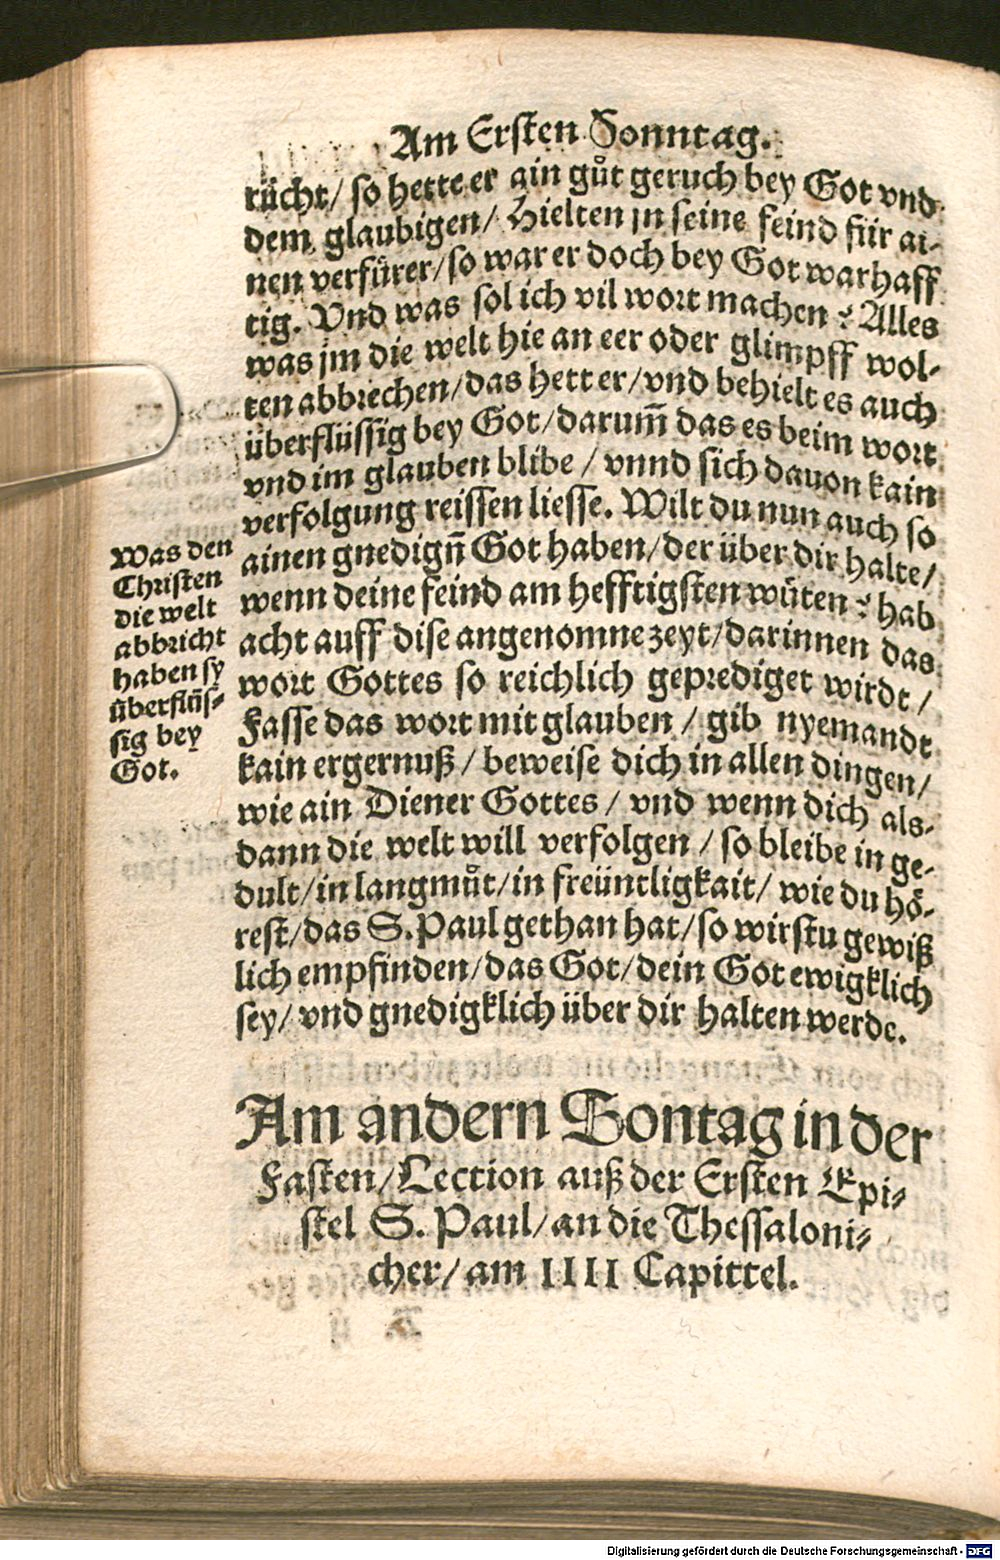 Am Ersten Sonntag.
rücht/ so hette er ain gůt geruch bey Got vnd
dem glaubigen/ Hielten jn seine feind für ai-
nen verfürer/ so war er doch bey Got warhaff
tig. Vnd was sol ich vil wort machen? Alles
was jm die welt hie an eer oder glimpff wol-
ten abbrechen/ das hett er/ vnd behielt es auch
überflüssig bey Got/ darum̃ das es beim wort
vnd im glauben blibe/ vnnd sich dauon kain
verfolgung reissen liesse. Wilt du nun auch so
ainen gnedign̄ Got haben/ der über dir halte/
wenn deine feind am hefftigsten wüten? hab
acht auff dise angenomne zeyt/ darinnen das
wort Gottes so reichlich geprediget wirdt/
Fasse das wort mit glauben/ gib nyemandt
kain ergernuß/ beweise dich in allen dingen/
wie ain Diener Gottes/ vnd wenn dich als-
dann die welt will verfolgen/ so bleibe in ge-
dult/ in langmůt/ in freüntligkait/ wie du hö-
rest/ das S. Paul gethan hat/ so wirstu gewiß
lich empfinden/ das Got/ dein Got ewigklich
sey/ vnd gnedigklich über dir halten werde.
Was den
Christen
die welt
abbricht
haben sy
überflüs-
sig bey
Got.
Am andern Sontag in der
Fasten/ Lection auß der Ersten Epi-
stel S. Paul/ an die Thessaloni-
cher/ am IIII Capittel.
Digitalisierung gefördert durch die Deutsche Forschungsgemeinschaft - DFG